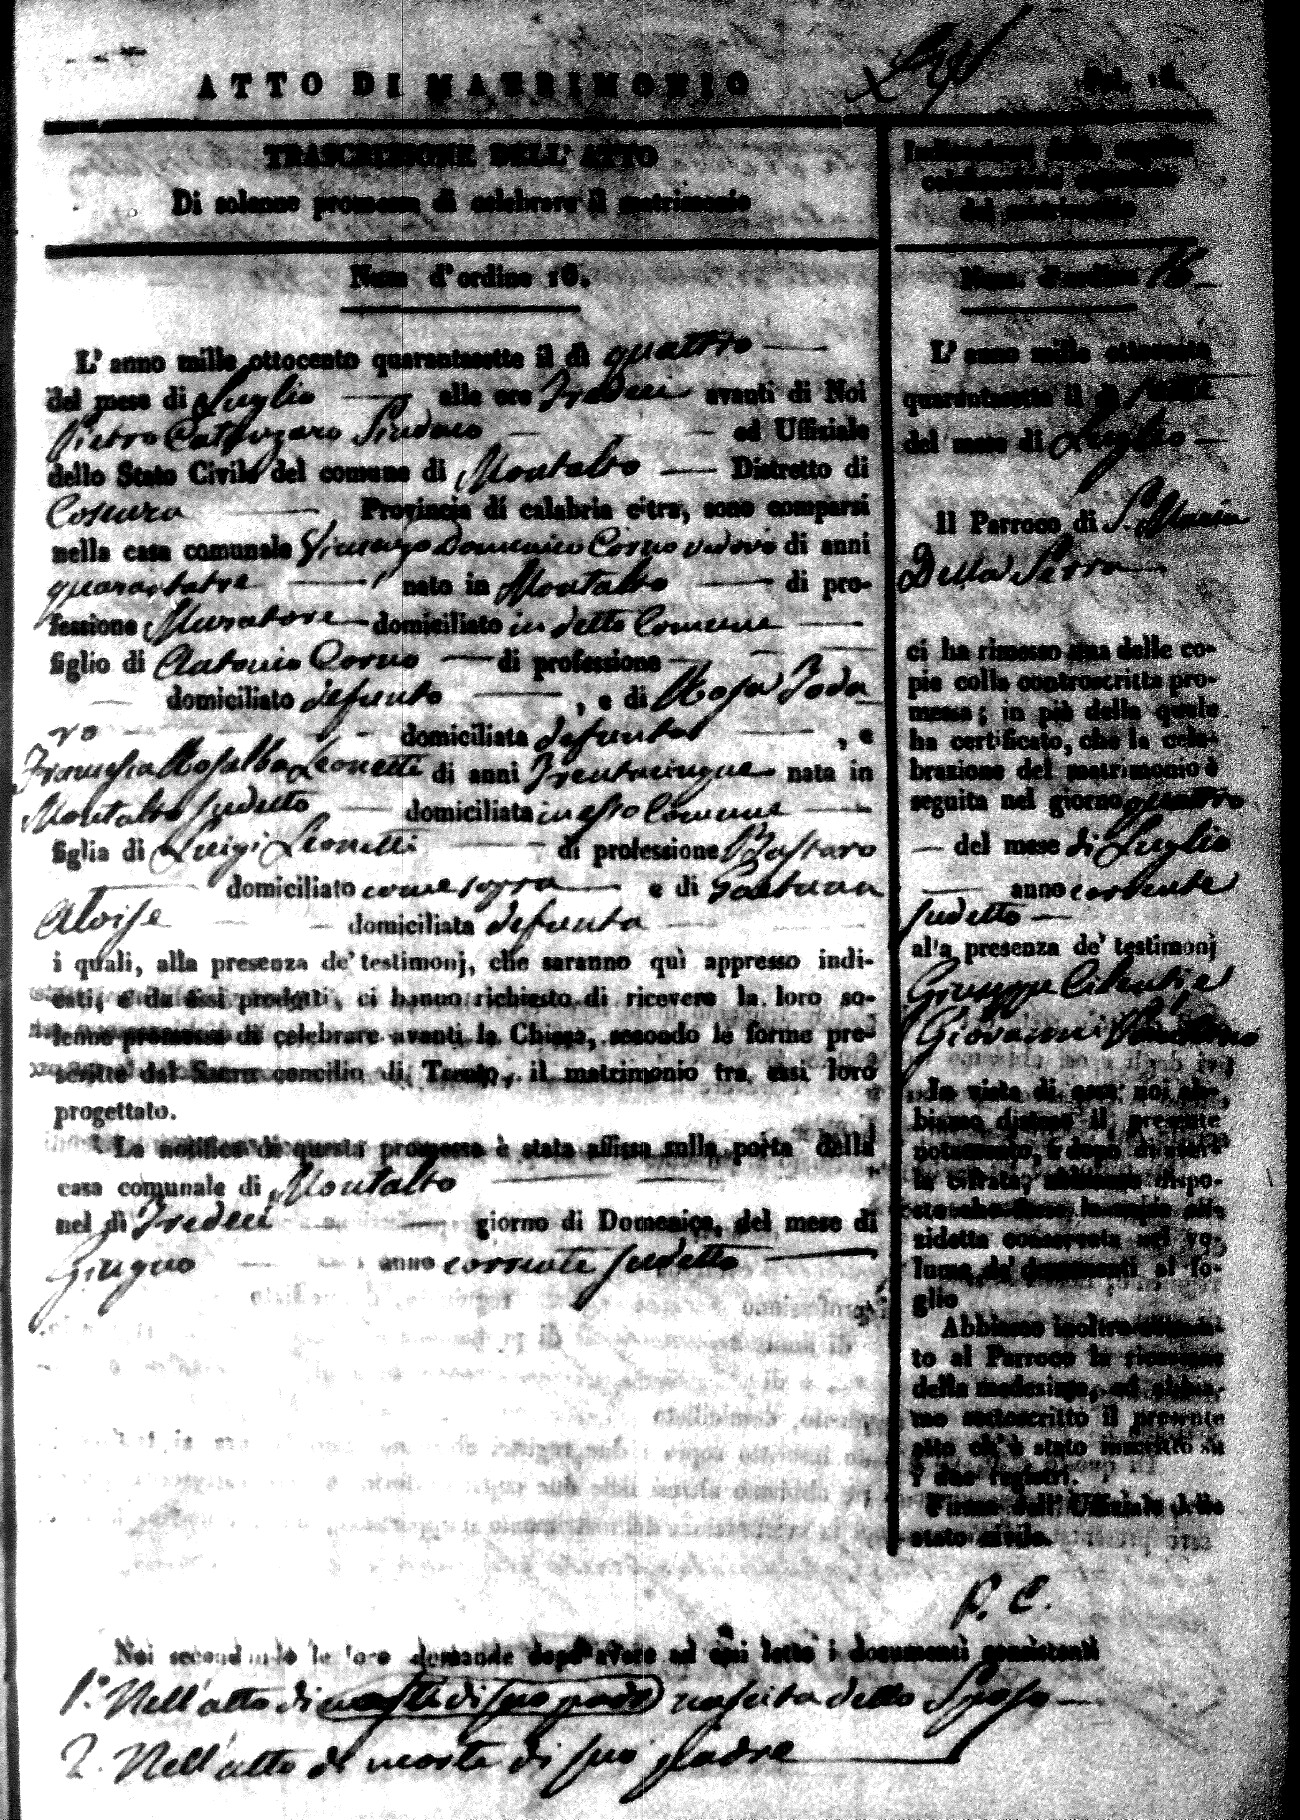 ATTO DI MATRIMONIO
TRASCRIZIONE DELL' ATTO
Di solenne promessa di celebrare il matrimonio
Num d'ordine 16.
L' anno mille ottocento quarantasette il dì quattro
del mese di Luglio alle ore Tredeci avanti di Noi
Pietro Catanzaro Sindaco ed Uffiziale
dello Stato Civile del comune di Montalto Distretto di
Cosenza Provincia di calabria citra, sono comparsi
nella casa comunale Vincenzo Domenico Corno vedovo di anni
quarantatre nato in Montalto di pro-
fessione Muratore domiciliato in detto Comune
figlio di Antonio Corno di professione
domiciliato defunto , e di Rosa Toda
ro domiciliata defunta , e
Francesca Rosalba Leonetti di anni Trentacinque nata in
Montalto sudetto domiciliata in esso Comune
figlia di Luigi Leonetti di professione Bastaro
domiciliato come sopra e di Gaetana
Aloise domiciliata defunta
i quali, alla presenza de' testimonj, che saranno quì appresso indi-
cati, e da essi prodotti, ci hanno richiesto di ricevere la loro so-
lenne promessa di celebrare avanti la Chiesa, secondo le forme pre-
scritte dal Sacro concilio di Trento, il matrimonio tra essi loro
progettato.
La notifica di questa promessa è stata affissa sulla porta della
casa comunale di Montalto
nel dì Tredeci giorno di Domenica, del mese di
Giugno anno corrente sudetto
Indicazione della
celebrazione
del matrimonio
Num. d'ordine 16
L' anno mille ottocento
quarantasette il dì
del mese di Luglio
Il Parroco di S. Maria
Della Serra
ci ha rimesso una delle co-
pie colla controscritta pro-
messa; in piè della quale
ha certificato, che la cele-
brazione del matrimonio è
seguita nel giorno quattro
del mese di Luglio
anno corrente
sudetto
alla presenza de' testimonj
Giuseppe
Giovanni
In vista di essa noi ab-
biamo disteso il presente
notamento, e dopo di averla
cifrata, abbiamo dispo-
sto che fosse la copia
sidetta conservata nel vo-
lume de' documenti al fo-
glio
Abbiamo inoltre accusa-
to al Parroco la ricezione
della medesima, ed abbia-
mo sottoscritto il presente
atto ch' è stato inscritto su
i due registri.
Firma dell' Uffiziale dello
stato civile.
P. C.
Noi secondando le loro domande dopo avere ad essi letto i documenti consistenti
1.° Nell'atto di morte di suo padre nascita dello Sposo
2. Nell'atto di morte di suo padre